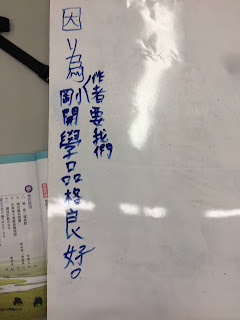 因為剛開學品格良好。
作者要我們